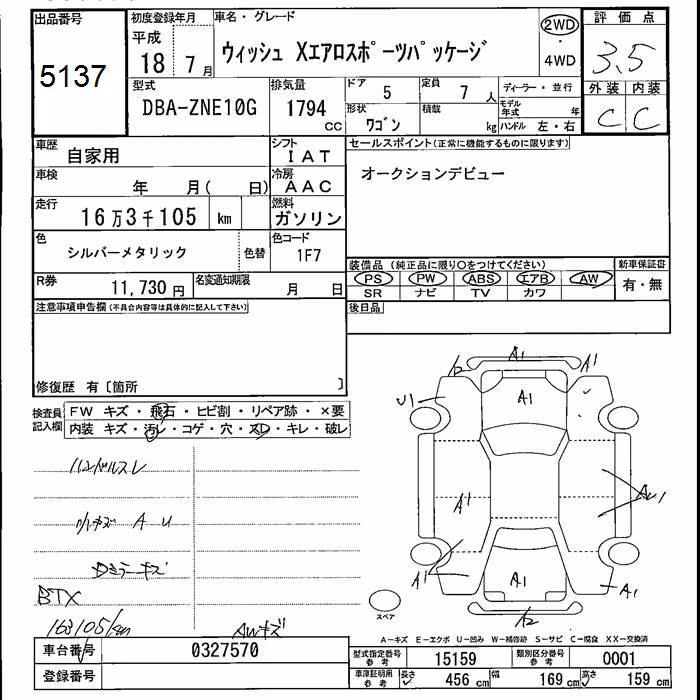 出品番号
5137
初度登録年月
平成
18 7月
車名・グレード
ウィッシュ Xエアロスポーツパッケージ
2WD
・
4WD
評価点
3.5
外装 内装
C C
型式
DBA-ZNE10G
排気量
1794
CC
ドア 5
定員 7人
形状 ワゴン
積載 kg
ディーラー・並行
モデル年式 年
ハンドル 左・右
車歴 自家用
シフト IAT
車検 年 月( 日)
冷房 AAC
走行 16万3千105 km
燃料 ガソリン
色 シルバーメタリック
色替
色コード 1F7
R券 11,730円
名変通知期限 月 日
セールスポイント(正常に機能するものに限ります)
オークションデビュー
装備品(純正品に限り○をつけてください)
PS PW ABS エアB AW
SR ナビ TV カワ
新車保証書
有・無
後日品
注意事項申告欄(不具合内容等は具体的に記入して下さい)
修復歴 有〔箇所 〕
検査員記入欄
FW キズ・飛石・ヒビ割・リペア跡・×要
内装 キズ・汚レ・コゲ・穴・スレ・キレ・破レ
ハンドルスレ
内キズ A U
Dミラーキズ
BTX
163105km
AWキズ
A1
A1
U1
A1
A1
A1
A1
A1
スペア
A-キズ E-エクボ U-凹み W-補修跡 S-サビ C-腐食 XX-交換済
車台番号 0327570
登録番号
型式指定番号 参考 15159
類別区分番号 参考 0001
車庫証明用 参考 長さ 456 cm 幅 169 cm 高さ 159 cm